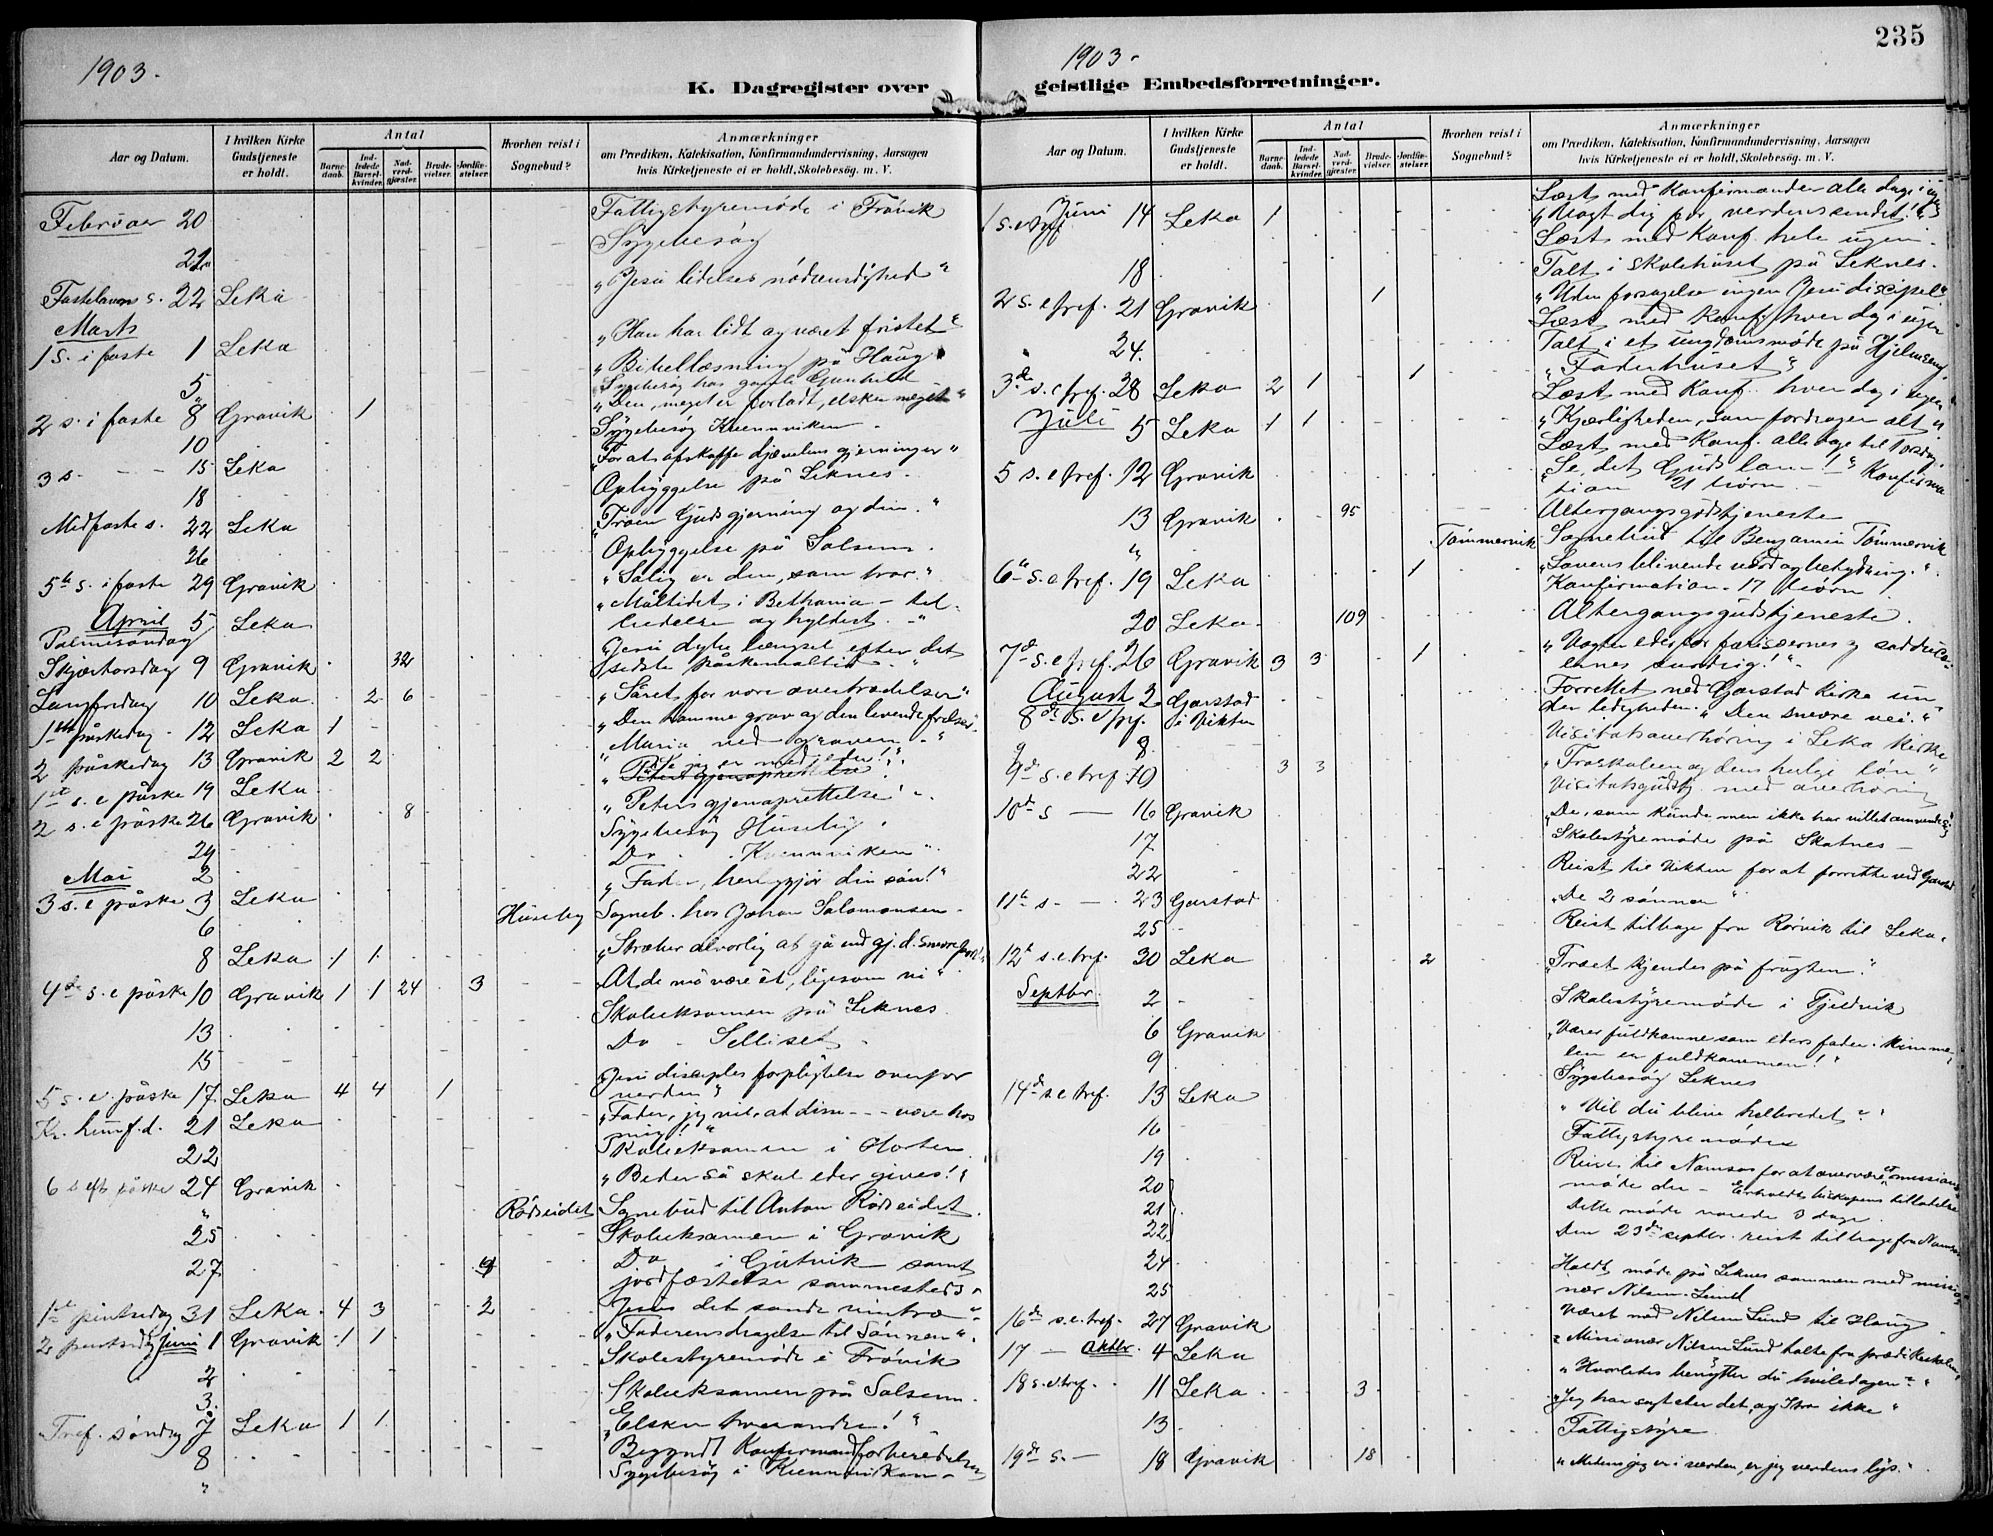 235
1903.
1903.
K. Dagregister over geistlige Embedsforretninger.
Aar og Datum.
I hvilken Kirke Gudstjeneste er holdt.
Antal
Barnedaab.
Indledede Barselkvinder.
Nadverdgjæster.
Brudevielser.
Jordfæstelser.
Hvorhen reist i Sognebud?
Anmærkninger
om Prædiken, Katekisation, Konfirmandundervisning, Aarsagen
hvis Kirketjeneste ei er holdt, Skolebesøg. m. V.
Februar 20 Fattigstyremøde i Frøvik
Sygebesøg
Fastelavns s. 22 Leka „Jesu lidelses nødvendighed“
Marts
1 s. i faste 1 Leka „Han har lidt og været fristet“
5 „Bibellæsning på Haug
2 s. i faste 8 Gravik 1 „Den, meget er forladt, elsker meget“
10 Sygebesøg Kvennviken
3 s. - - 15 Leka „For at afskaffe djævelens gjerninger“
18 Opbyggelse på Leknes.
Midfaste s. 22 Leka „Troen Guds gjerning og din.“
26 Opbyggelse på Solsem.
5te s. i faste 29 Gravik „Salig er den, som tror.“
April 5 Leka „Måltidet i Bethania -
Palmesøndag og hyldest. “
Skjærtorsdag 9 Gravik 32 Jesu dybe længsel efter det sidste påskemåltid. “
Langfredag 10 Leka. 2 6 „Såret for vore overtrædelser“
1ste påskedag 12 Leka 1 „Den tomme grav og den levende frelser.“
2 påskedag 13 Gravik 2 2 „Maria ved graven. “
1ste s. e påske 19 Leka
2 s. e påske 26 Gravik 8 „Peters gjenoprettelse“
29 Sygebesøg Huseby.
Mai 2 Do Kvennviken
3 s. e påske 3 Leka „Fader, herliggjør din søn!“
6 Huseby Sogneb. hos Johan Salomonsen
8 Leka 1 1 „Stræber alvorlig at gå ind gj. d. snevre port“
4de s. e påske 10 Gravik 1 1 24 3 At de må være ét, ligesom vi“
13 Skoleeksamen på Leknes
15 Do - Selliset
5 s. e. påske 17 Leka 4 4 1 Jesu disciples forpligtelse overfor verden“
Kr. himf. d. 21 Leka „Fader, jeg vil, at disse - - - være hos mig!“
22 Skoleeksamen i Horten.
6 s eft påske 24 Gravik „Beder så skal eder gives!“
„ Rødseidet Sognebud til Anton Rødseidet.
25 Skoleeksamen i Gravik
27 Do i Gutvik samt jordfæstelse sammesteds.
1ste pintsedag 31 Leka 4 3 2 Jesus det sande vintræ“
2 pintsedag Juni 1 Gravik 1 1 „Faderens dragelse til Sønnen“.
2 Skolestyremøde i Frøvik
3. Skoleeksamen på Solsem.
Tref. søndag 7 Leka 1 1 „Elsker hverandre!“
8 Begyndt Konfirmandforberedelsen
„ Sygebesøg i Kvennviken
Aar og Datum.
I hvilken Kirke Gudstjeneste er holdt.
Antal
Barnedaab.
Indledede Barselkvinder.
Nadverdgjæster.
Brudevielser.
Jordfæstelser.
Hvorhen reist i Sognebud?
Anmærkninger
om Prædiken, Katekisation, Konfirmandundervisning, Aarsagen
hvis Kirketjeneste ei er holdt, Skolebesøg. m. V.
Læst med Konfirmander alle dage i ugen
1 s. e tref. Juni 14 Leka 1 „Vogt dig for verdenssindet!“
Læst med Konf. hele ugen.
18 Talt i skolehuset på Leknes.
2 s. e tref. 21 Gravik 1 „Uden forsagelse ingen Jesu discipel“
Læst med Konf. hver dag i ugen
24. Talt i et ungdomsmøde på Hjelmseng
3de s. e tref. 28 Leka 2 1 1 „Faderhuset“
Læst med Konf. hver dag i ugen
Juli 5 Leka 1 1 „Kjærligheden, som fordrager alt“
Læst med Konf. alle dage til torsdag.
5 s. e tref. 12 Gravik „Se, det Guds lam!“ Konfirmation 21 børn.
13 Gravik 95 Altergangsgudstjeneste
„ Tømmervik Sognebud til Benjamin Tømmervik
6te s. e tref. 19 Leka 1 „Lovens blivende værd og betydning.“
Konfirmation. 17 børn
20 Leka 109 Altergangsgudstjeneste.
7de s. e tref. 26 Gravik 3 3 1 „Vogter eder for farisæernes og sadducæernes surdeig!“
August 2 Garstad i Vikten Forrettet ved Garstad Kirke under ledigheden. „Den snevre vei.“
8de s. e tref.
8. Visitatsoverhøring i Leka Kirke
9de s. e tref. 3 3 „Troskaben og dens herlige løn“
Visitatsgudstj. med overhøring
10de s - 16 Gravik „De, som kunde men ikke har villet omvende sig“
17 Skolestyremøde på Skotnes
22 Reist til Vikten for at forrette ved Garstad
11te s. - 23 Garstad „De 2 sønner“
25 Reist tilbage fra Rørvik til Leka.
12te s. e. tref. 30 Leka 2 „Træet kjendes på frugten.“
Septbr. 2 Skolestyremøde i Fjeldvik
6 Gravik „Værer fuldkomne som eders fader i himmelen er fuldkommen!“
9 Sygebesøg Leknes
14de s e tref. 13 Leka „Vil du blive helbredet“
16 Fattigstyremøde
19 Reist til Namsos for at overvære et missionsmøde der - Erholdt biskopens tilladelse
20
21 Dette møde varede 3 dage.
22 Den 23de septbr. reist tilbage fra Namsos
24 Holdt møde på Leknes sammen med missionær Nilsen-Lund
25 Været med Nilsen Lund til Haug
16de s. e. tref. 27 Gravik „Missionær Nilsen Lund talte fra prædikestolen
17 - Oktbr. 4 Leka „Hvorledes benytter du hviledagen?“
18 s. e. tref. 11 Leka 3 „Jeg har sagt eder det, og I tro ikke“
13 Fattigstyre
19de s. - 18 Gravik 18 „Medens jeg er i verden, er jeg verdens lys.“